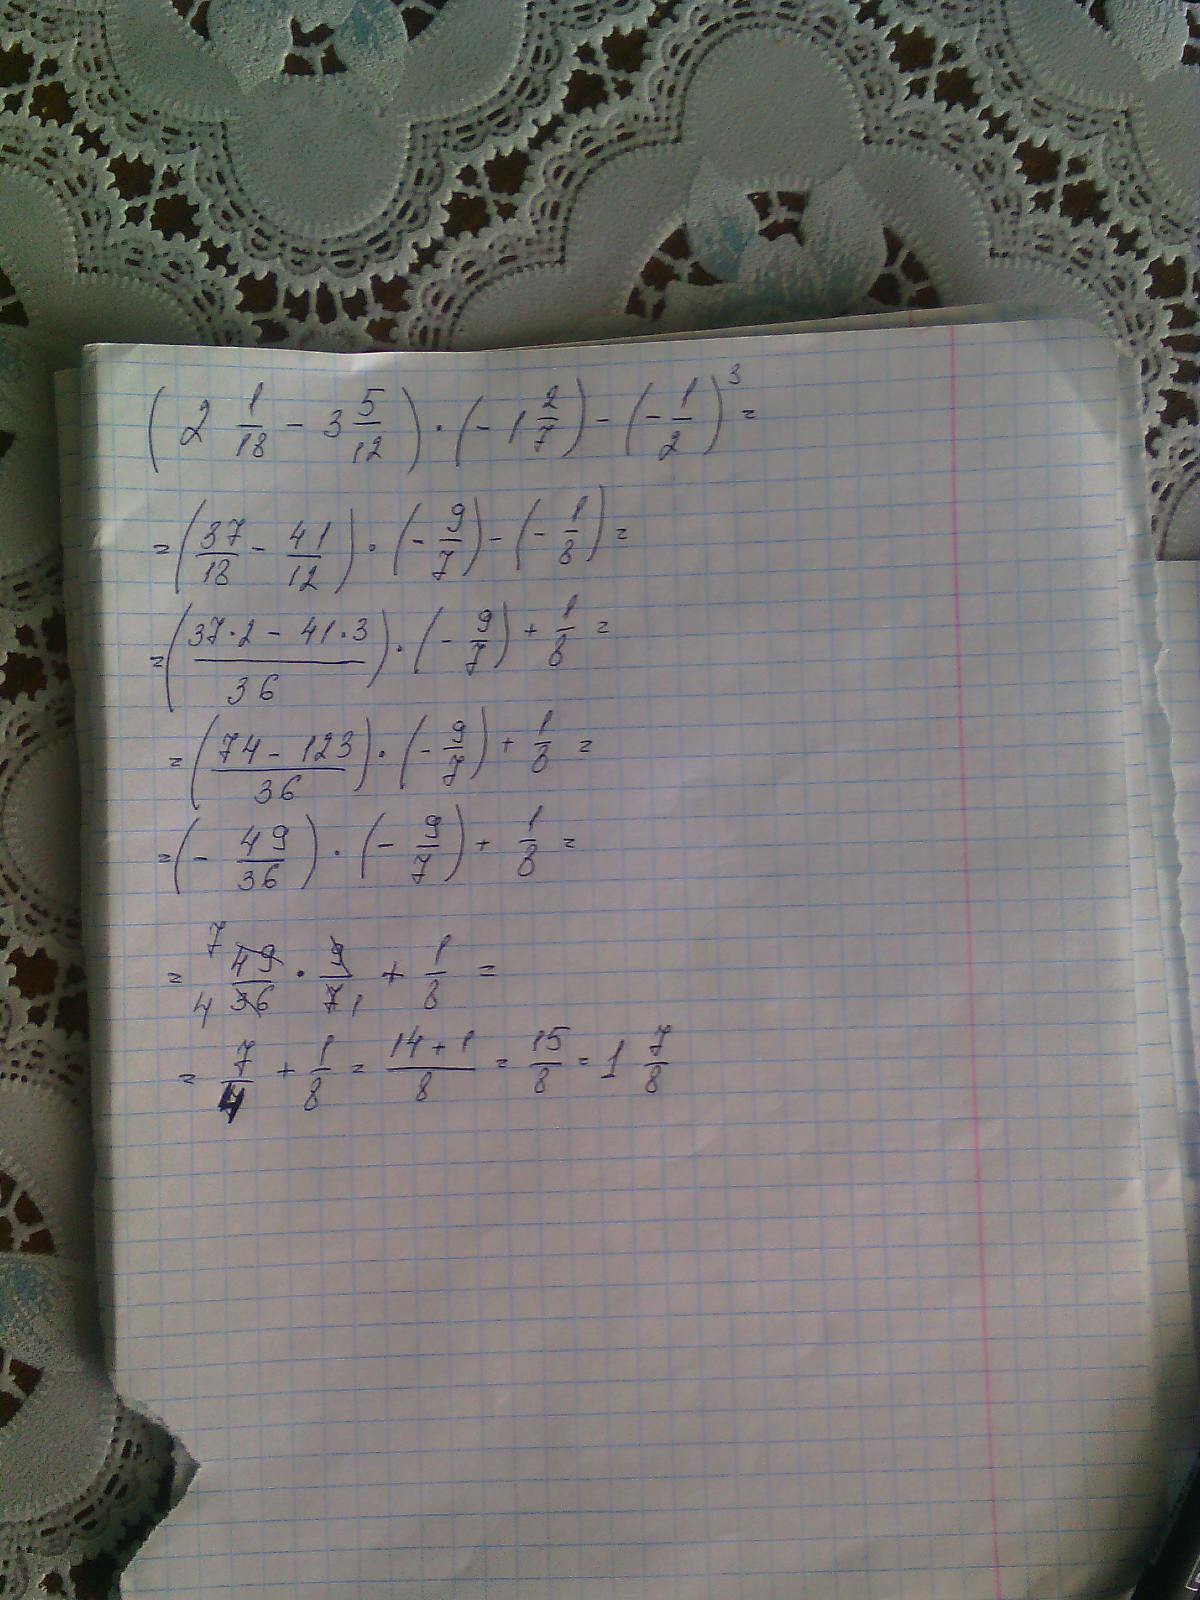 (2 1/18 - 3 5/12) · (-1 2/7) - (-1/2)³ =
= (37/18 - 41/12) · (-9/7) - (-1/8) =
= ((37·2 - 41·3)/36) · (-9/7) + 1/8 =
= ((74 - 123)/36) · (-9/7) + 1/8 =
= (-49/36) · (-9/7) + 1/8 =
= 7 49/4 36 · 9/7 1 + 1/8 =
= 7/4 + 1/8 = (14+1)/8 = 15/8 = 1 7/8